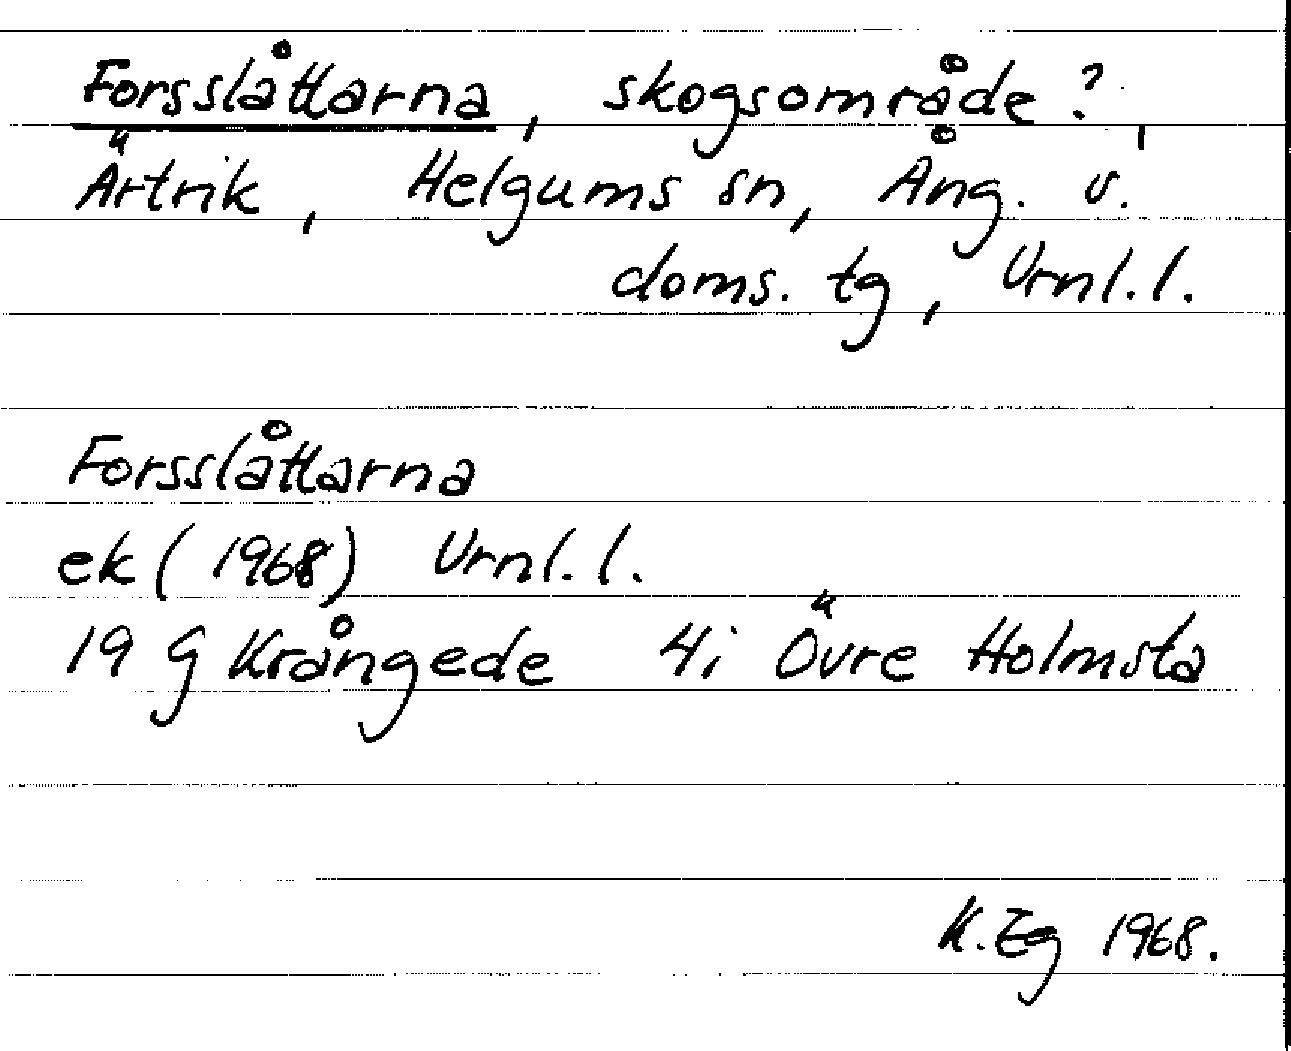 Forsslåttarna, skogsområde?,
Ärtrik, Helgums sn, Ång. v.
doms. tg, Vrnl. l.
Forsslåttarna
ek (1968) Vrnl. l.
19 G Krångede 4i Övre Holmsta
K. Eg 1968.